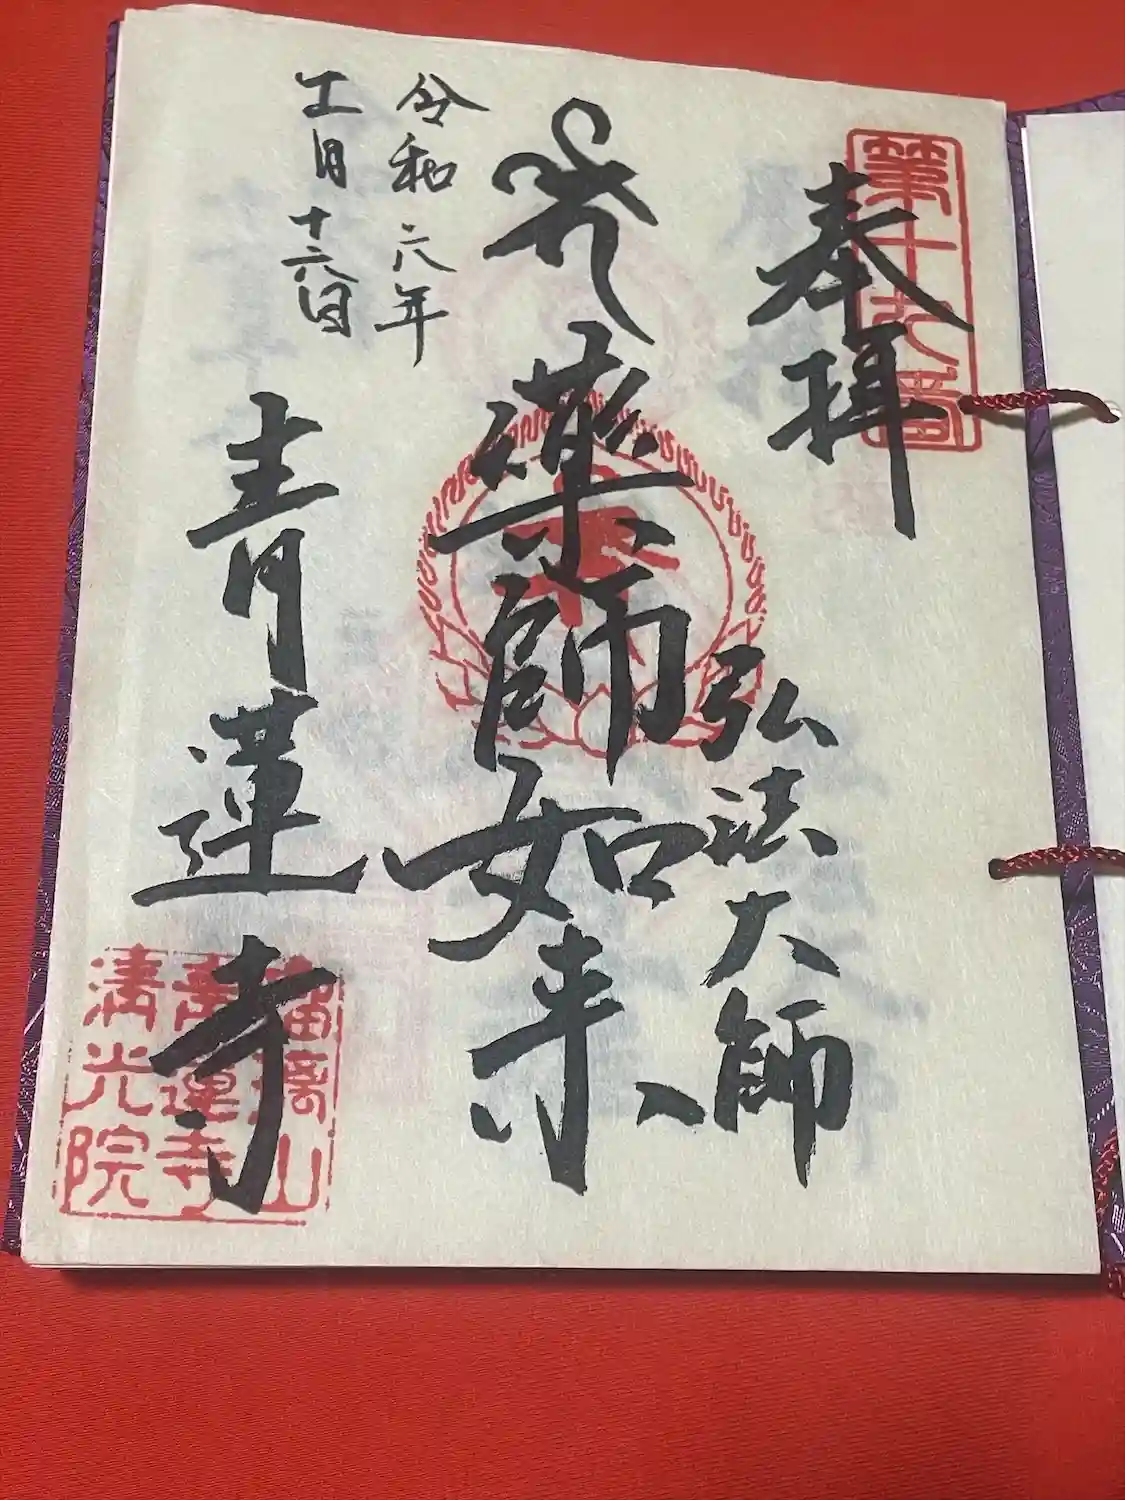 第十九番
奉拝
弘法大師
薬師如来
令和六年
五月十六日
青蓮寺
瑠璃山
青蓮寺
清光院